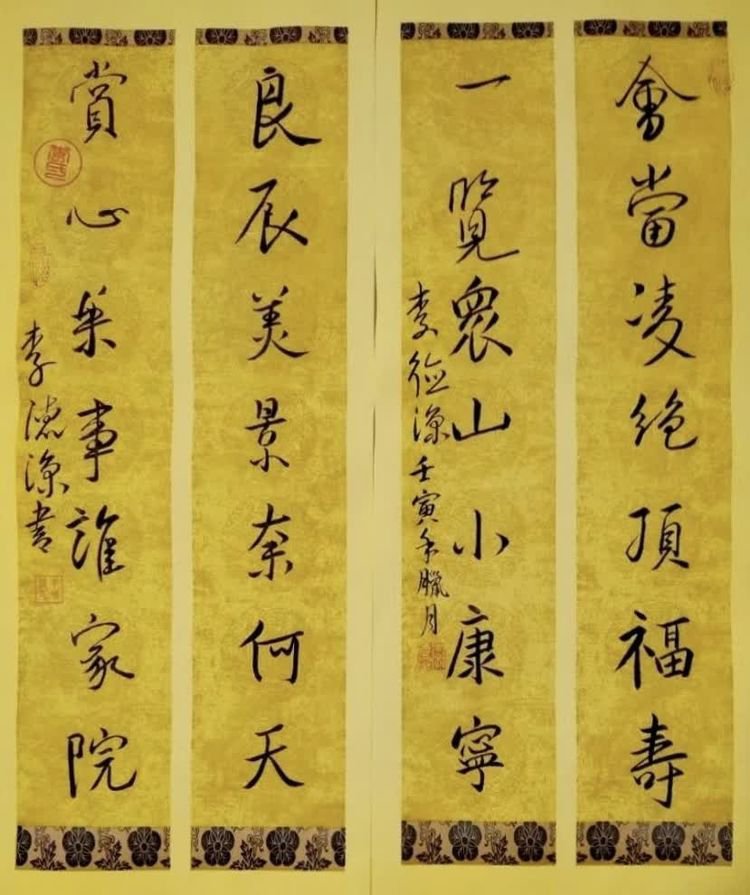 會當凌絕頂福壽
一覽眾山小康寧
李德深壬寅年臘月
良辰美景奈何天
賞心樂事誰家院
李德深書